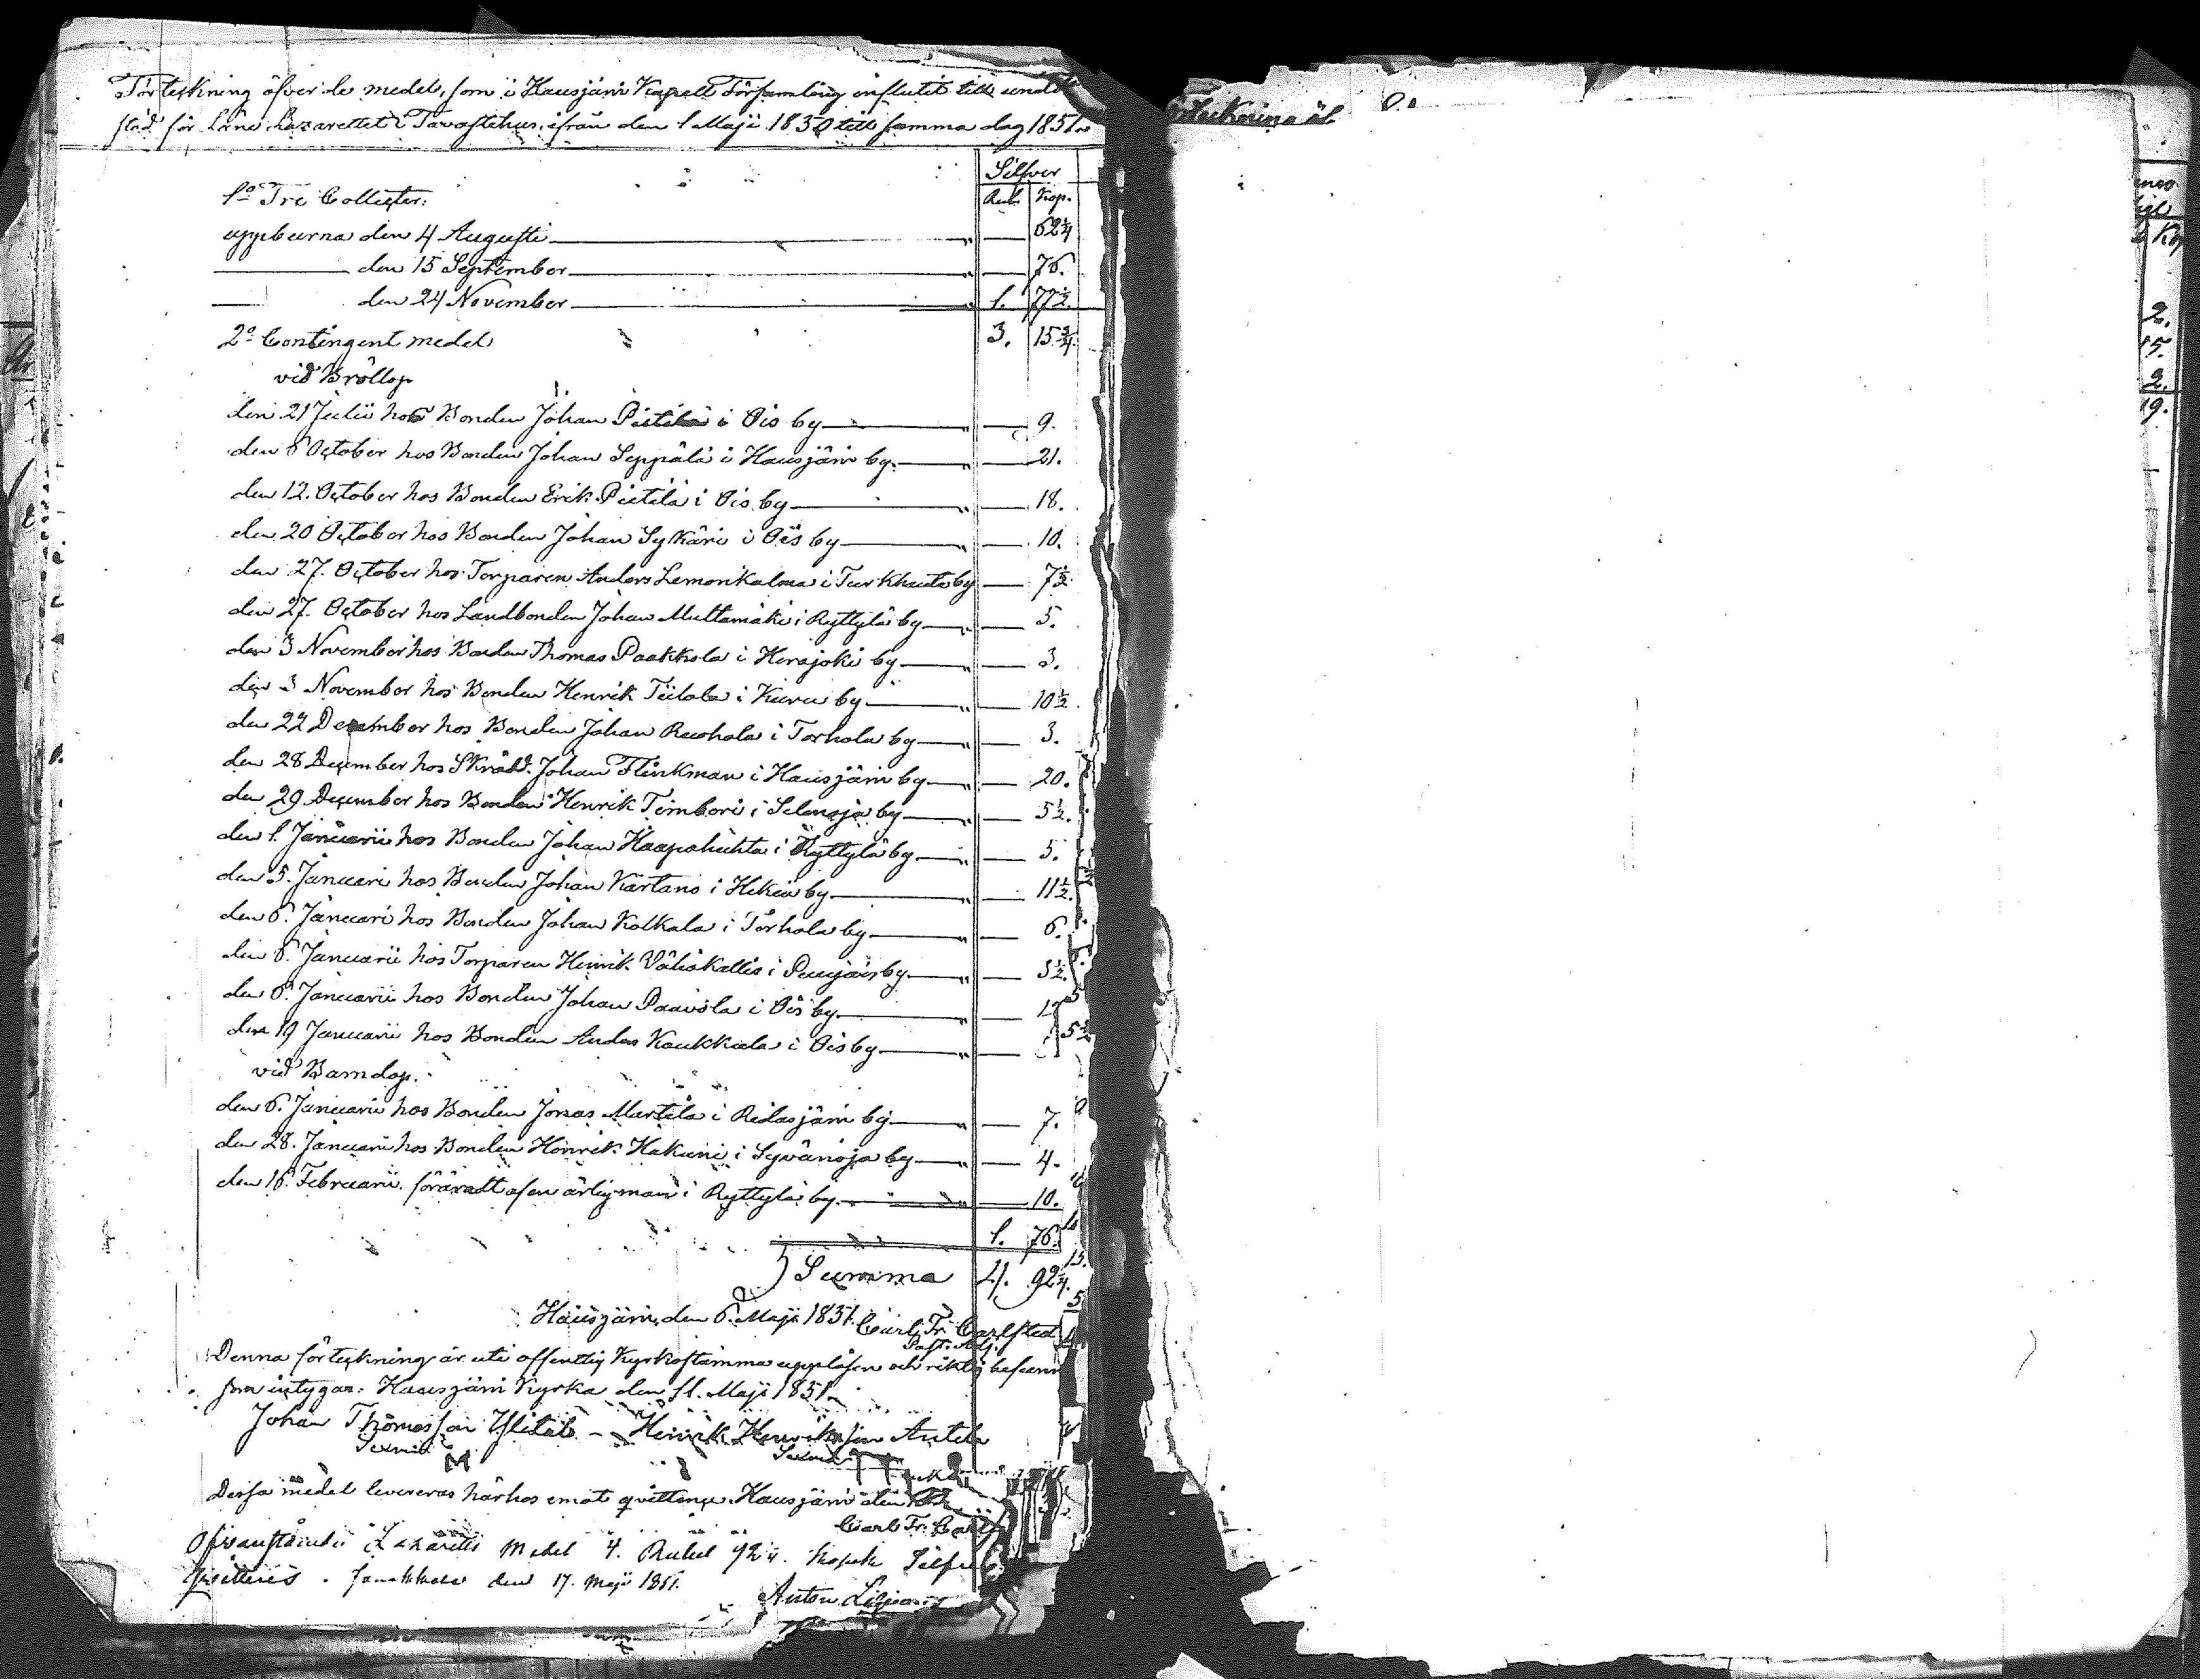 Förteckning öfver de medel, som i Hausjärvi Kapell Församling influtit till under
stöd för Läne Lazarettet i Tavastehus, ifrån den 1 Maji 1850 till samma dag 1851.
Silfver
1o Tre Collecter. Rub. Kop.
uppburna den 4 Augusti — 62 1/4
den 15 September — 76.
den 24 November 1. 77 1/2.
2o Contingent medel 3. 15 3/4.
vid Bröllop
den 21 Julii hos Bonden Johan Pietilä i Ois by — 9.
den 6 October hos Bonden Johan Seppälä i Hausjärvi by — 21.
den 12. October hos Bonden Erik Pietilä i Ois by — 18.
den 20 October hos Bonden Johan Sykäri i Ois by — 10.
den 27. October hos Torparen Anders Lemonkalma i Turkhauta by — 7 1/2
den 27. October hos Landbonden Johan Multamäki i Ryttylä by — 5.
den 3 November hos Bonden Thomas Paakkola i Herajoki by — 3.
den 3 November hos Bonden Henrik Tiilola i Kuru by — 10 1/2.
den 22 December hos Bonden Johan Ruohola i Torhola by — 3.
den 28 December hos Skrädd. Johan Flinkman i Hausjärvi by — 20.
den 29 December hos Bonden Henrik Timbori i Selenoja by — 5 1/2.
den 1. Januarii hos Bonden Johan Haapahuhta i Ryttylä by — 5.
den 5. Januari hos Bonden Johan Kartano i Hikiä by — 11 1/2.
den 6. Januari hos Bonden Johan Kolkala i Torhola by — 6.
den 6. Januarii hos Torparen Henrik Väliskallio i Puujärvi by — 3 1/2.
den 6. Januarii hos Bonden Johan Paavola i Ois by — 12
den 19 Januarii hos Bonden Anders Kaukkala i Ois by —
vid Barndop.
den 6. Januarii hos Bonden Jonas Martila i Ridasjärvi by — 7.
den 28. Januarii hos Bonden Henrik Hakuni i Syvänoja by — 4.
den 16. Februarii föräradt af en ärlig man i Ryttylä by — 10.
1. 76.
Summa 4. 92 1/4.
Hausjärvi, den 6. Maji 1851. Carl Fr. Carlsted
Past. Adj.
Denna förteckning är uti offentlig Kyrkostämma uppläsen och riktig befunn
som intygas. Hausjärvi Kyrka den 11. Maji 1851.
Johan Thomasson Ylitalo – Henrik Henriksson Antela
Sexman Sexman
Dessa medel levereras härhos emot qvittence. Hausjärvi den
Carl Fr. Carl
Ofvanstående Lazaretts Medel 4. Rubel 92 1/4. Kopek Silfver
qvitteras. Janakkala den 17. Maji 1851.
Anton Lilius